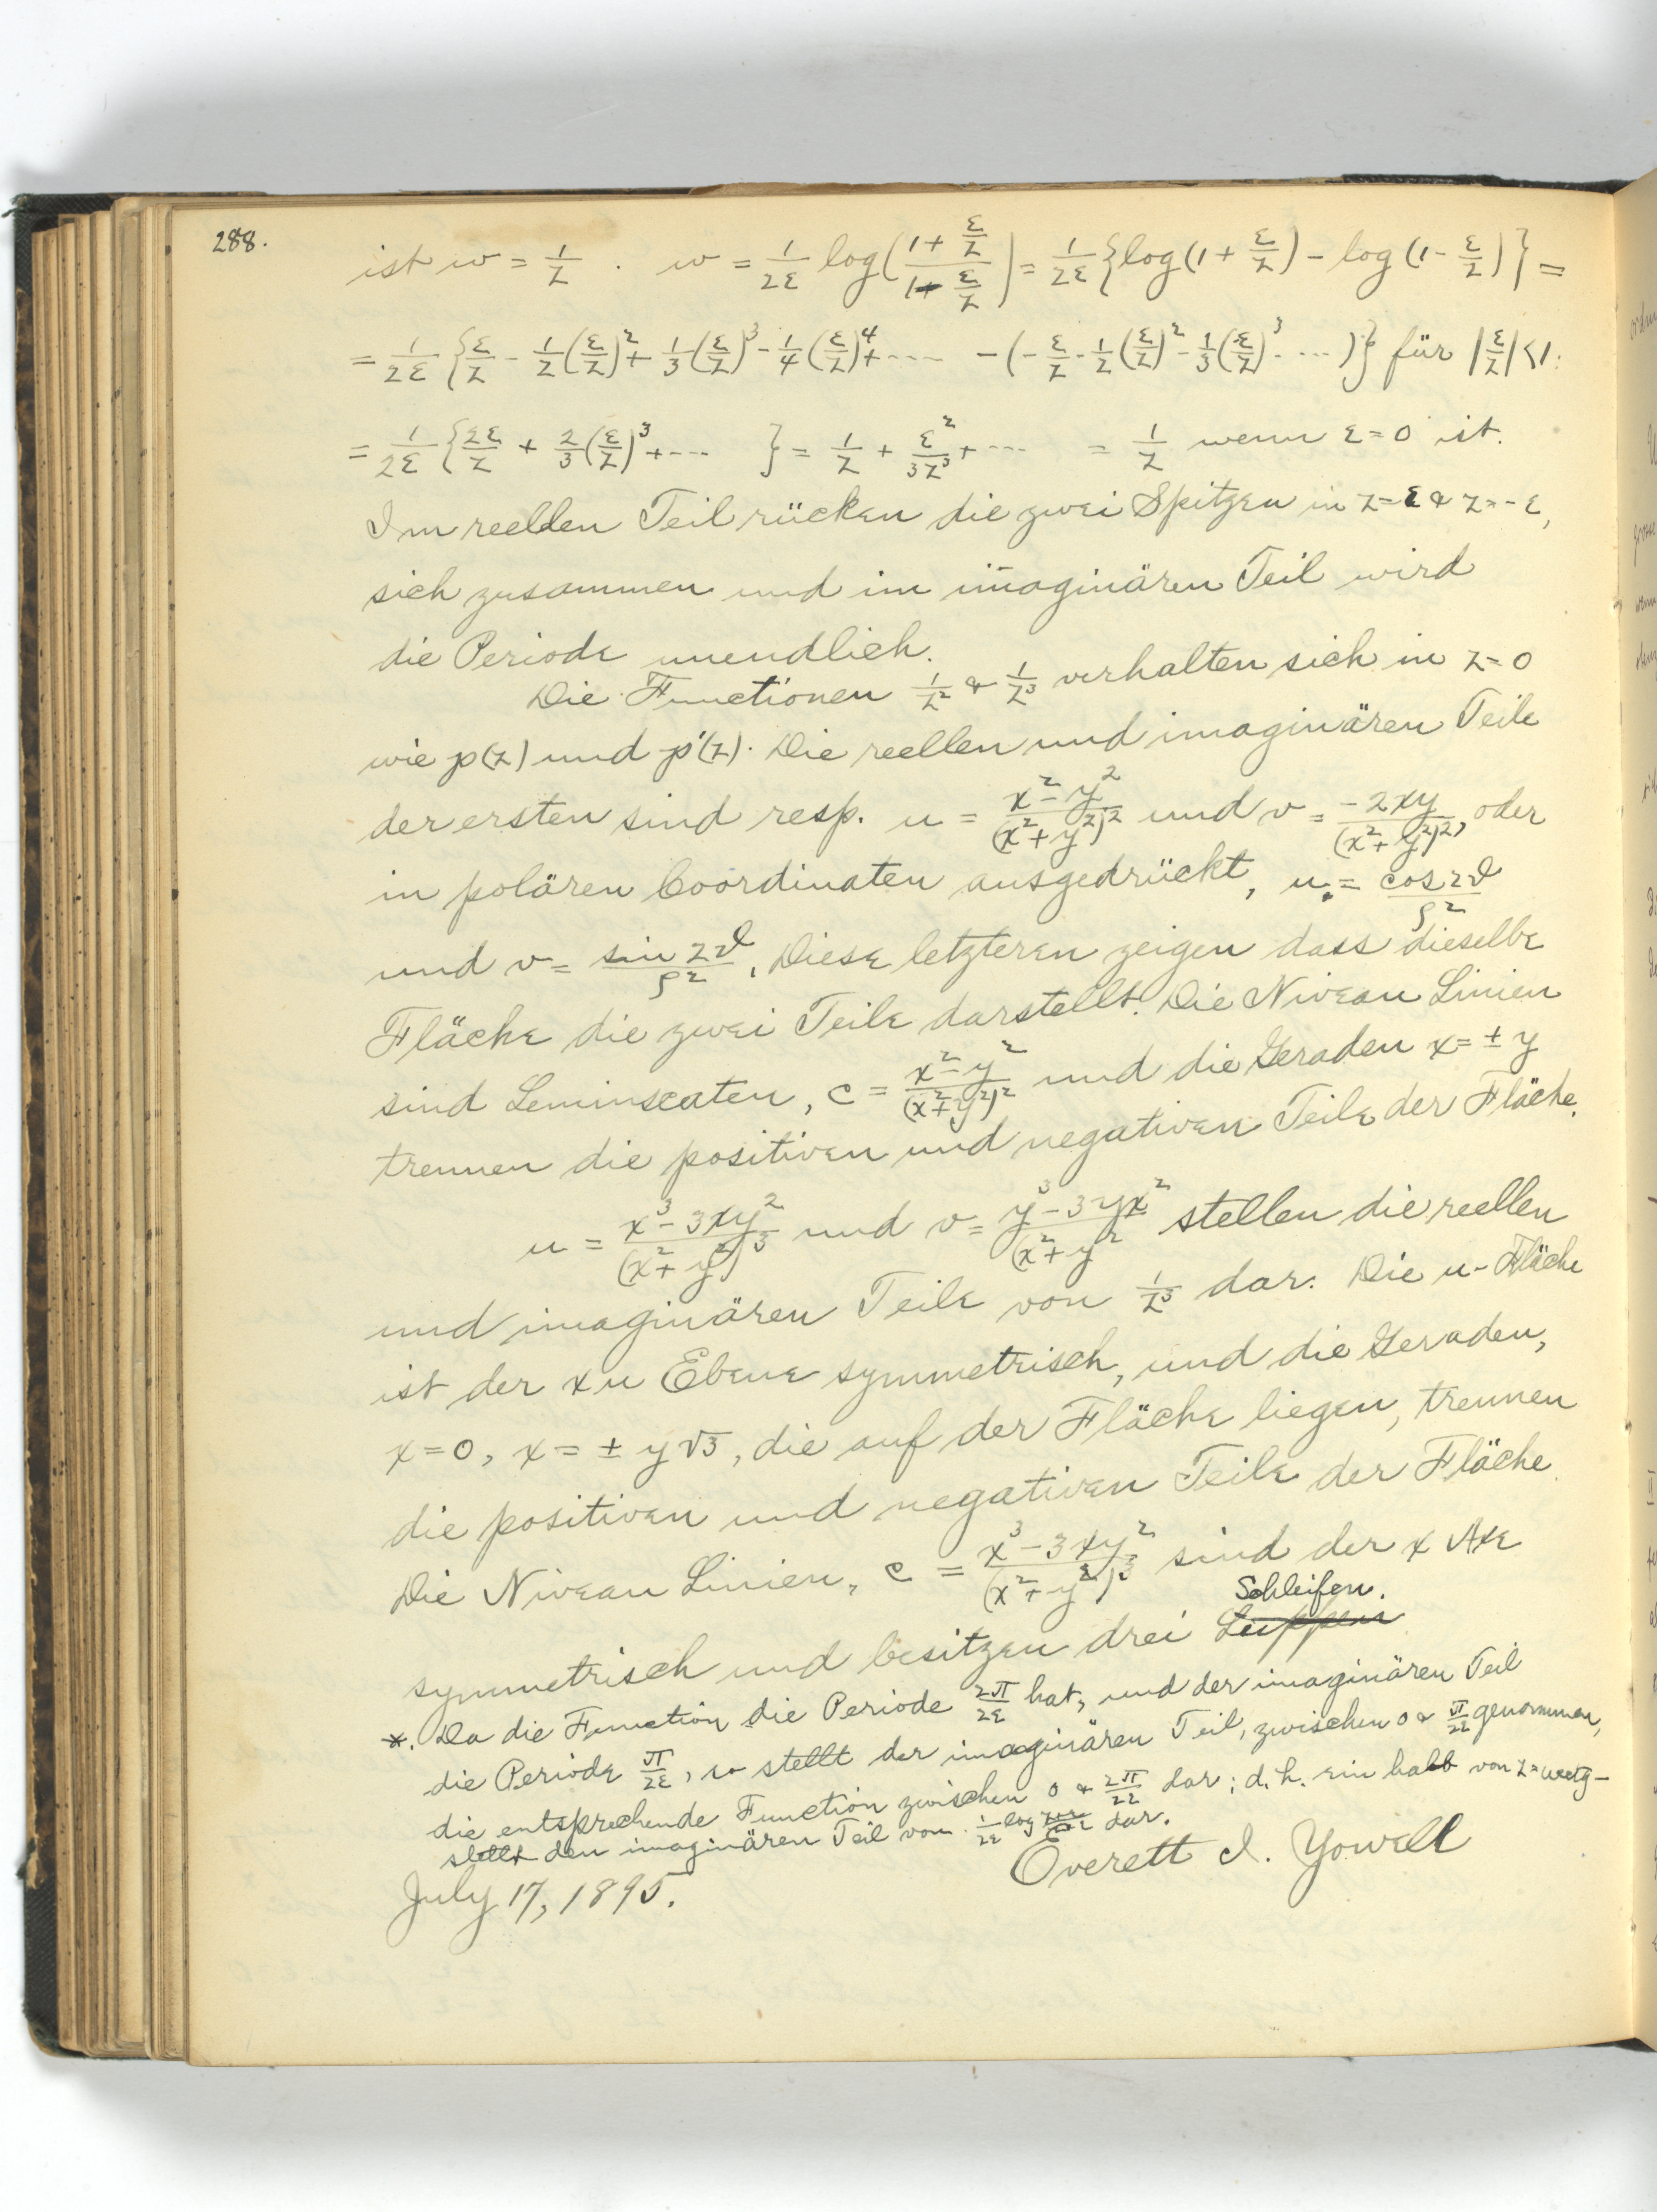 288.
ist w = 1/z . w = 1/2ε log((1+ε/z)/(1-ε/z)) = 1/2ε {log(1+ε/z) - log(1-ε/z)} =
= 1/2ε {ε/z - 1/2(ε/z)² + 1/3(ε/z)³ - 1/4(ε/z)⁴ + ···· - (-ε/z - 1/2(ε/z)² - 1/3(ε/z)³ - ···)} für |ε/z|<1.
= 1/2ε {2ε/z + 2/3(ε/z)³ + ···· } = 1/z + ε²/3z³ + ···· = 1/z wenn ε=0 ist.
Im reellen Teil rücken die zwei Spitzen in z=ε & z=-ε,
sich zusammen und im imaginären Teil wird
die Periode unendlich.
Die Functionen 1/z² & 1/z³ verhalten sich in z=0
wie p(z) und p'(z). Die reellen und imaginären Teile
der ersten sind resp. u = (x²-y²)/(x²+y²)² und v = -2xy/(x²+y²)², oder
in polären Coordinaten ausgedrückt, u = cos 2ϑ/ρ²
und v = sin 2ϑ/ρ². Diese letzteren zeigen dass dieselbe
Fläche die zwei Teile darstellt. Die Niveau Linien
sind Leminscaten, c = (x²-y²)/(x²+y²)² und die Geraden x=±y
trennen die positiven und negativen Teile der Fläche.
u = (x³-3xy²)/(x²+y²)³ und v = (y³-3yx²)/(x²+y² stellen die reellen
und imaginären Teile von 1/z³ dar. Die u-Fläche
ist der xu Ebene symmetrisch, und die Geraden,
x=0, x=±y√3, die auf der Fläche liegen, trennen
die positiven und negativen Teile der Fläche
Die Niveau Linien, c = (x³-3xy²)/(x²+y²)³ sind der x Axe
Schleifen.
symmetrisch und besitzen drei Luppen
*. Da die Function die Periode 2π/2ε hat, und der imaginären Teil
die Periode π/2ε, so stellt der imaginären Teil, zwischen 0 & π/2ε genommen,
die entsprechende Function zwischen 0 & 2π/2ε dar; d.h. ein halb von
stellt den imaginären Teil von 1/2ε log dar.
July 17, 1895.
Everett I. Yowell